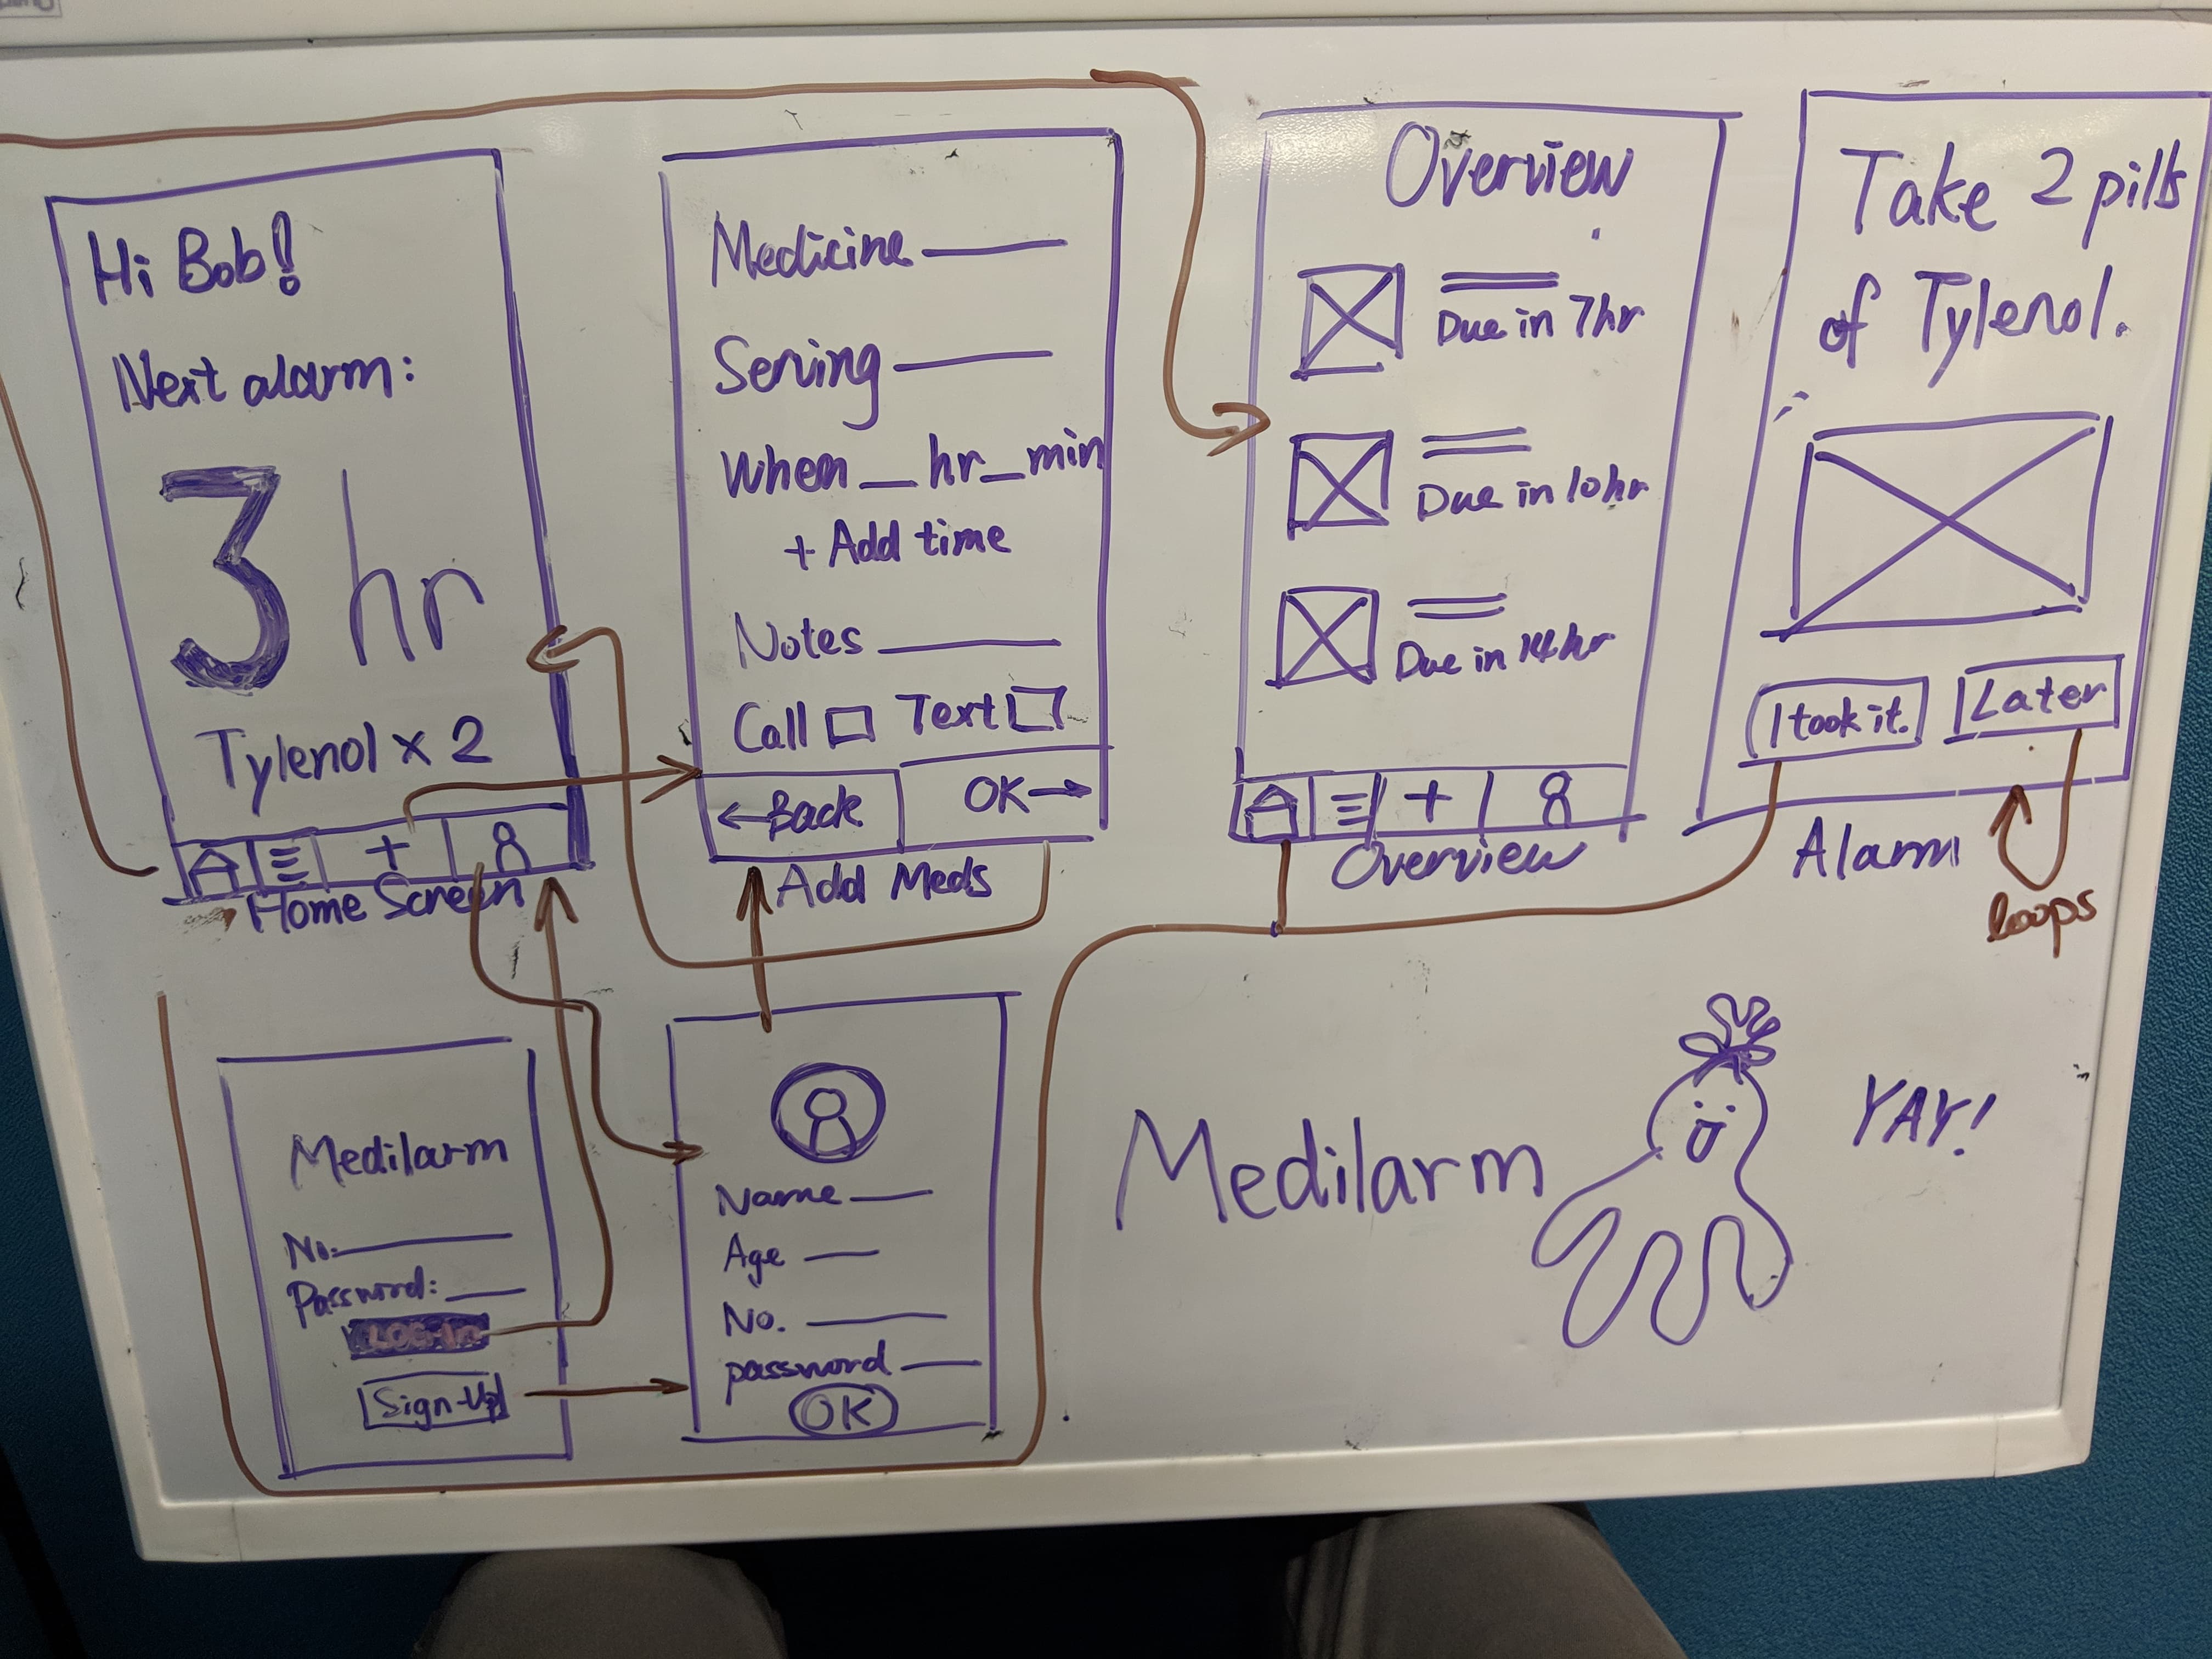 Hi Bob!
Next alarm:
3 hr
Tylenol x 2
Home Screen
Medicine
Serving
When __ hr __ min
+ Add time
Notes
Call Text
← Back OK →
Add Meds
Overview
Due in 7hr
Due in 10hr
Due in 14hr
+
Overview
Take 2 pills
of Tylenol.
I took it. Later
Alarm
loops
Medilarm
No.
Password:
LOG-In
Sign-Up
Name
Age
No.
password
OK
Medilarm
YAY!